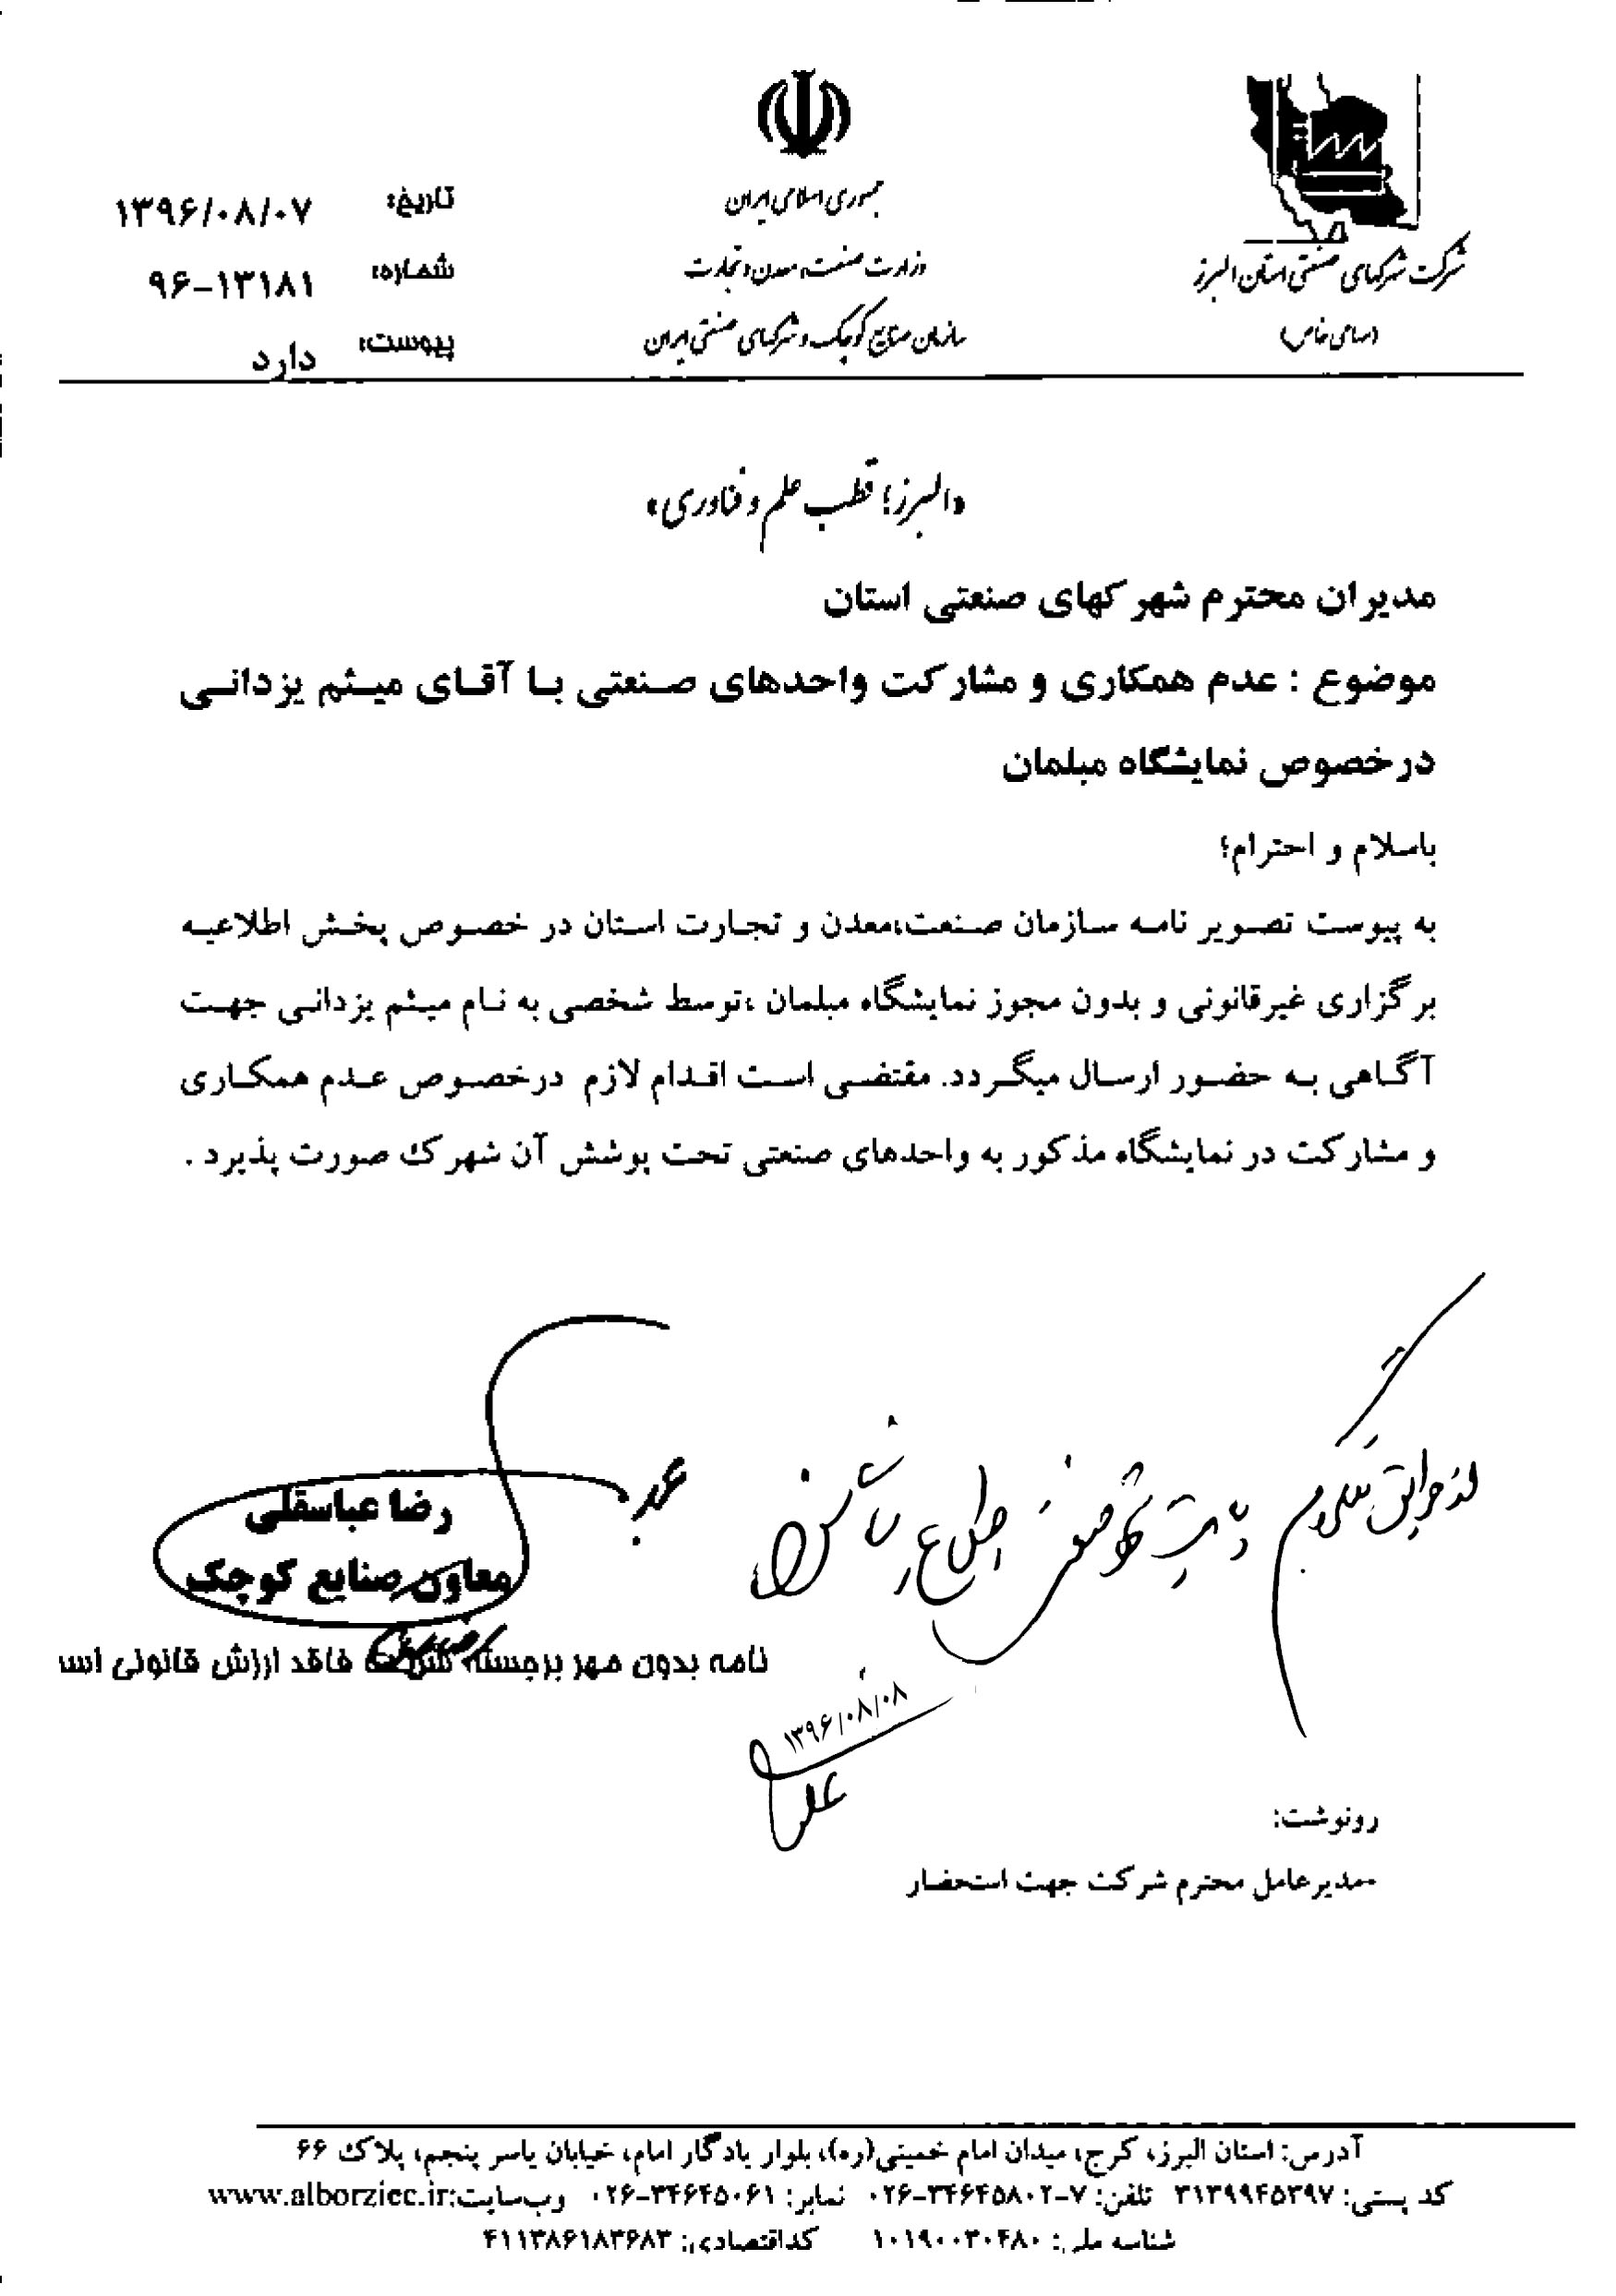 شرکت شهرکهای صنعتی استان البرز
(سهامی خاص)
جمهوری اسلامی ایران
وزارت صنعت، معدن و تجارت
سازمان صنایع کوچک و شهرکهای صنعتی ایران
تاریخ: ۱۳۹۶/۰۸/۰۷
شماره: ۹۶-۱۳۱۸۱
پیوست: دارد
«البرز؛ قطب علم و فناوری»
مدیران محترم شهرکهای صنعتی استان
موضوع : عدم همکاری و مشارکت واحدهای صنعتی با آقای میثم یزدانی
درخصوص نمایشگاه مبلمان
باسلام و احترام؛
به پیوست تصویر نامه سازمان صنعت،معدن و تجارت استان در خصوص پخش اطلاعیه
برگزاری غیرقانونی و بدون مجوز نمایشگاه مبلمان ،توسط شخصی به نام میثم یزدانی جهت
آگاهی به حضور ارسال میگردد. مقتضی است اقدام لازم درخصوص عدم همکاری
و مشارکت در نمایشگاه مذکور به واحدهای صنعتی تحت پوشش آن شهرک صورت پذیرد .
رضا عباسقلی
معاون صنایع کوچک
نامه بدون مهر برجسته شرکت فاقد ارزش قانونی اس
۱۳۹۶/۰۸/۰۸
رونوشت:
-مدیرعامل محترم شرکت جهت استحضار
آدرس: استان البرز، کرج، میدان امام خمینی(ره)، بلوار یادگار امام، خیابان یاسر پنجم، پلاک ۶۶
کد پستی: ۳۱۳۹۹۴۵۳۹۷ تلفن: ۷-۰۲۶-۳۴۶۴۵۸۰۲ نمابر: ۰۲۶-۳۴۶۴۵۰۶۱ وب‌سایت:www.alborziec.ir
شناسه ملی: ۱۰۱۹۰۰۳۰۴۸۰ کداقتصادی: ۴۱۱۳۸۶۱۸۳۶۸۳